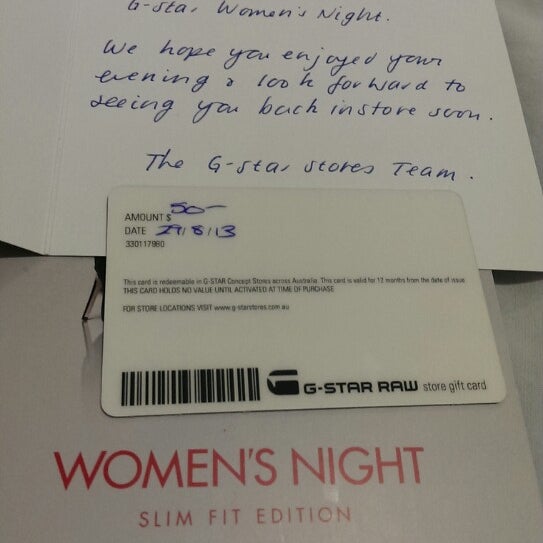 G-star Women's Night.
We hope you enjoyed your
evening & look forward to
seeing you back instore soon.
The G-star stores Team.
AMOUNT $ 50-
DATE 29/8/13
330117980
This card is redeemable in G-STAR Concept Stores across Australia This card is valid for 12 months from the date of issue
THIS CARD HOLDS NO VALUE UNTIL ACTIVATED AT TIME OF PURCHASE
FOR STORE LOCATIONS VISIT www.g-starstores.com.au
G-STAR RAW store gift card
WOMEN'S NIGHT
SLIM FIT EDITION